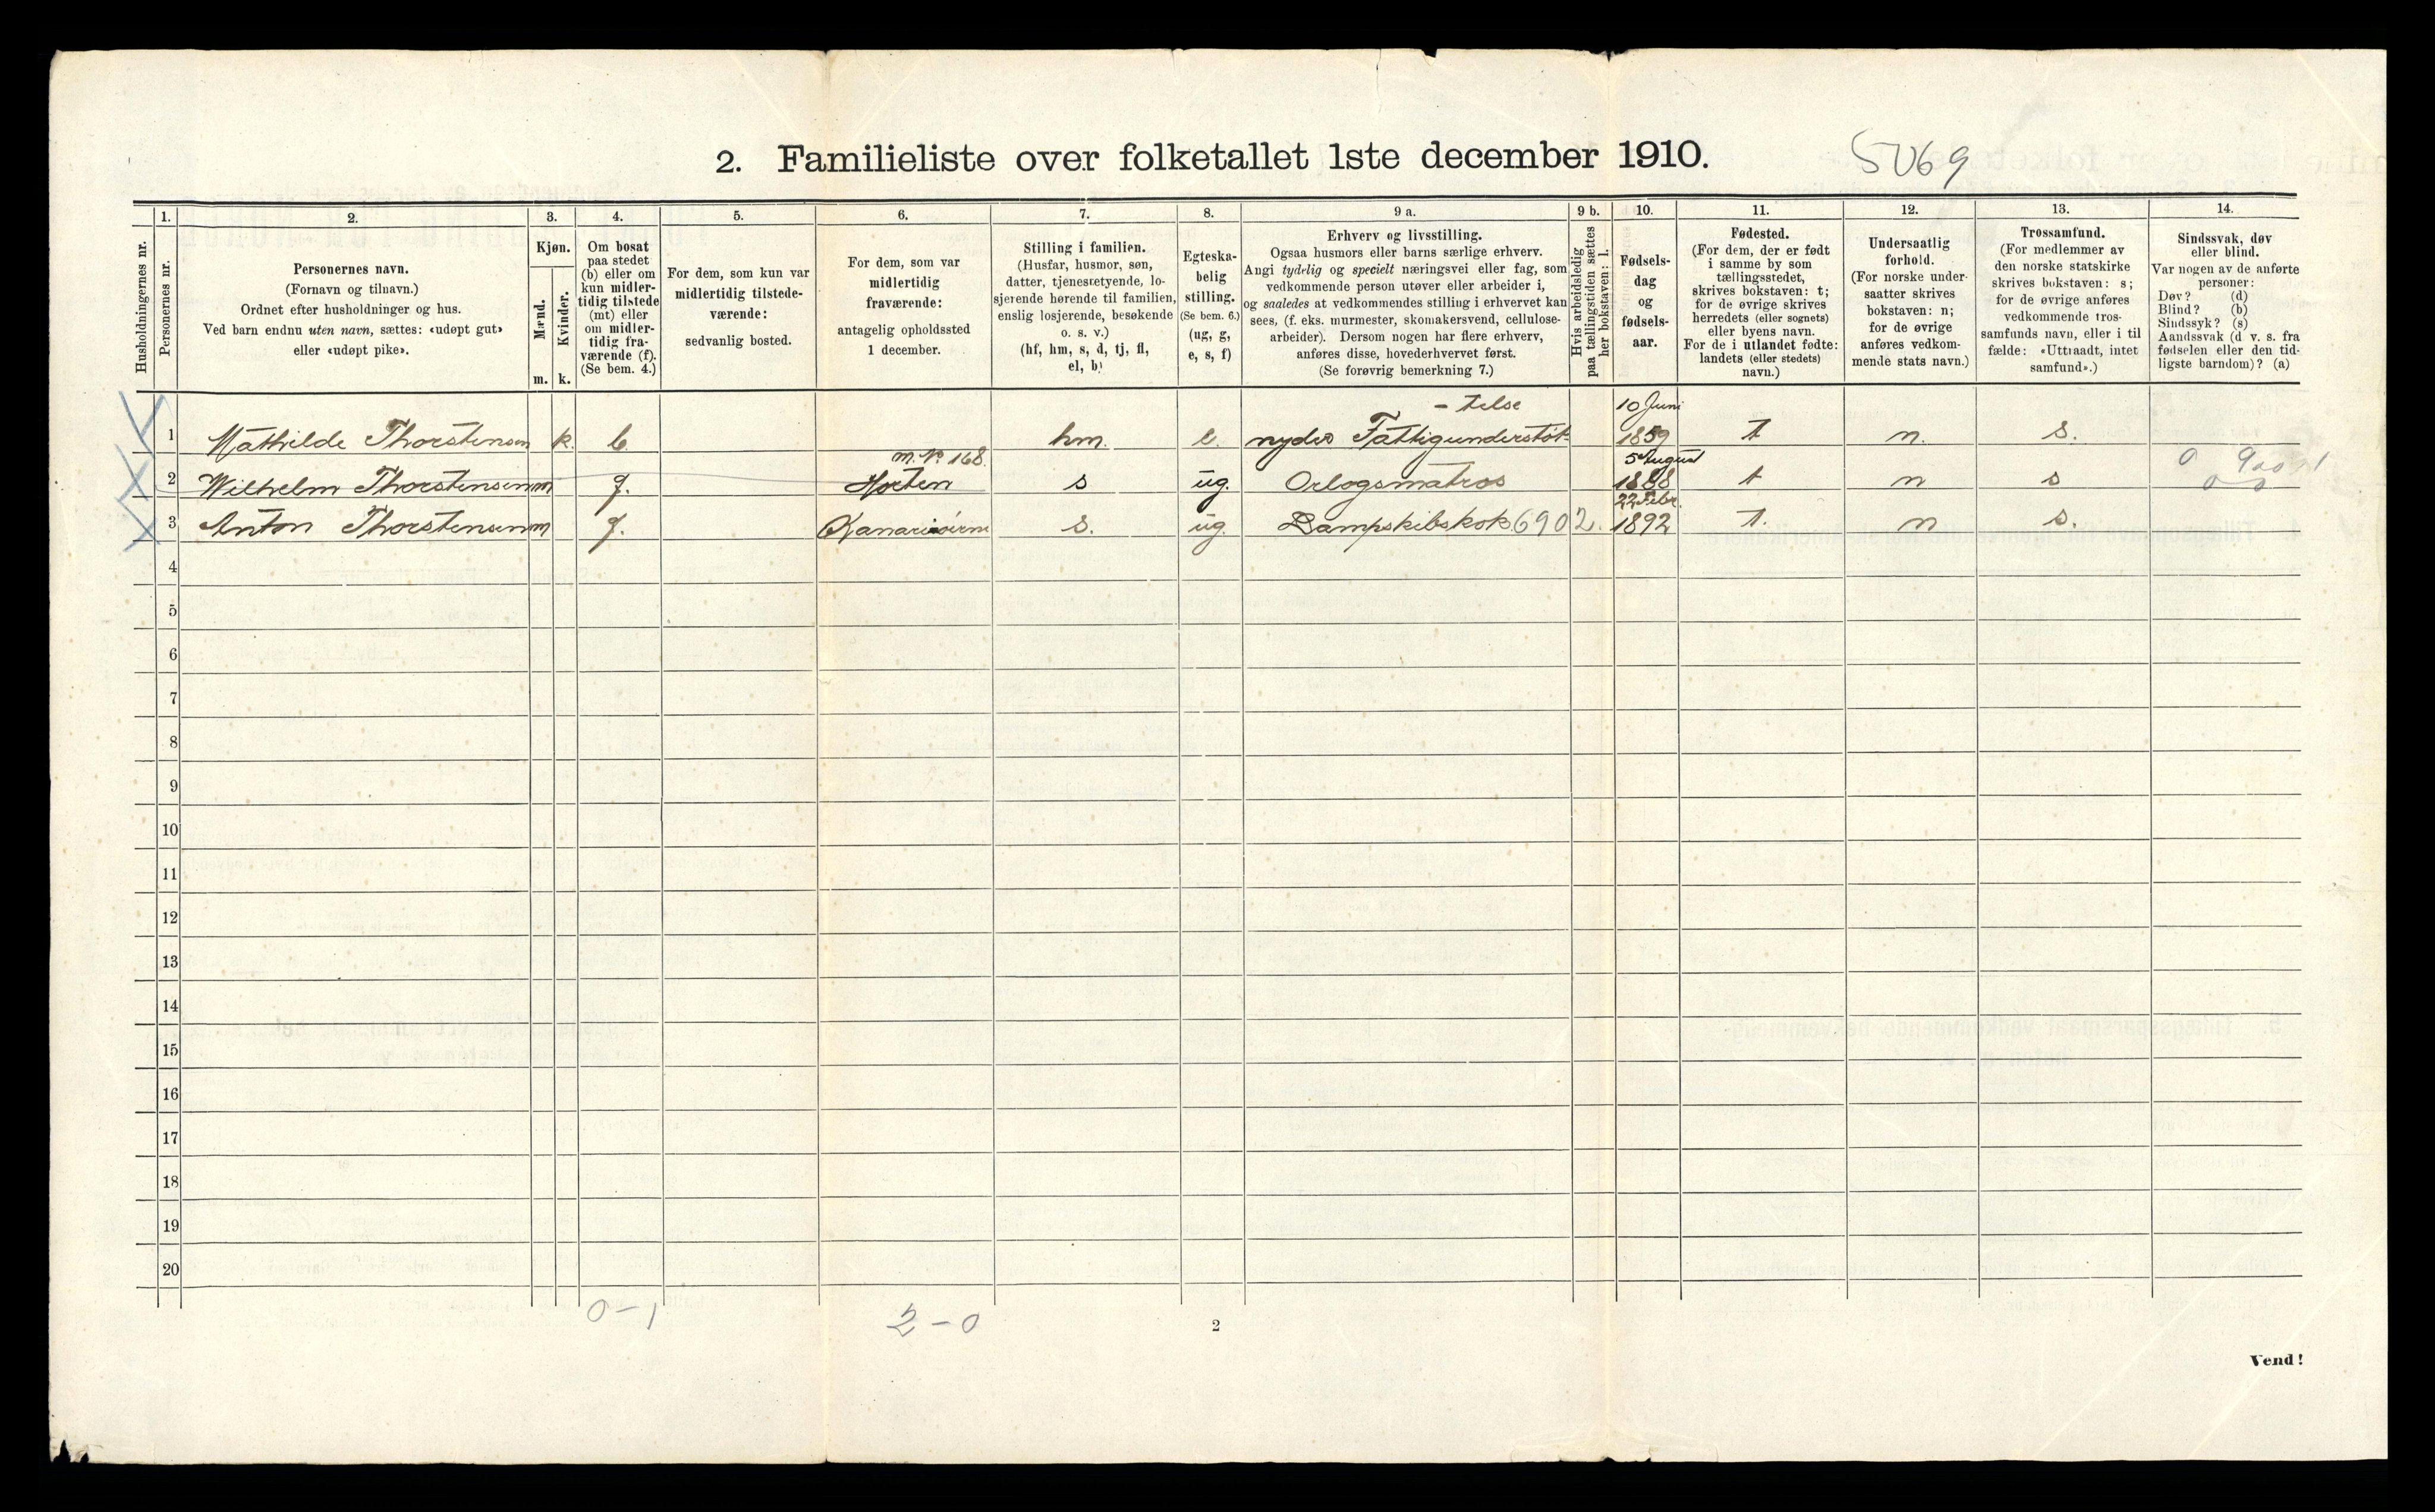 2. Familieliste over folketallet 1ste december 1910.
5069
Husholdningernes nr.
1.
Personernes nr.
2.
Personernes navn.
(Fornavn og tilnavn.)
Ordnet efter husholdninger og hus.
Ved barn endnu uten navn, sættes: «udøpt gut»
eller «udøpt pike».
3.
Kjøn.
Mænd.
Kvinder.
m. k.
4.
Om bosat
paa stedet
(b) eller om
kun midler-
tidig tilstede
(mt) eller
om midler-
tidig fra-
værende (f).
(Se bem. 4.)
5.
For dem, som kun var
midlertidig tilstede-
værende:
sedvanlig bosted.
6.
For dem, som var
midlertidig
fraværende:
antagelig opholdssted
1 december.
7.
Stilling i familien.
(Husfar, husmor, søn,
datter, tjenestetyende, lo-
sjerende hørende til familien,
enslig losjerende, besøkende
o. s. v.)
(hf, hm, s, d, tj, fl,
el, b)
8.
Egteska-
belig
stilling.
(Se bem. 6.)
(ug, g,
e, s, f)
9 a.
Erhverv og livsstilling.
Ogsaa husmors eller barns særlige erhverv.
Angi tydelig og specielt næringsvei eller fag, som
vedkommende person utøver eller arbeider i,
og saaledes at vedkommendes stilling i erhvervet kan
sees, (f. eks. murmester, skomakersvend, cellulose-
arbeider). Dersom nogen har flere erhverv,
anføres disse, hovederhvervet først.
(Se forøvrig bemerkning 7.)
9 b.
Hvis arbeidsledig
paa tællingstiden sættes
her bokstaven: l.
10.
Fødsels-
dag
og
fødsels-
aar.
11.
Fødested.
(For dem, der er født
i samme by som
tællingsstedet,
skrives bokstaven: t;
for de øvrige skrives
herredets (eller sognets)
eller byens navn.
For de i utlandet fødte:
landets (eller stedets)
navn.)
12.
Undersaatlig
forhold.
(For norske under-
saatter skrives
bokstaven: n;
for de øvrige
anføres vedkom-
mende stats navn.)
13.
Trossamfund.
(For medlemmer av
den norske statskirke
skrives bokstaven: s;
for de øvrige anføres
vedkommende tros-
samfunds navn, eller i til
fælde: «Uttraadt, intet
samfund».)
14.
Sindssvak, døv
eller blind.
Var nogen av de anførte
personer:
Døv? (d)
Blind? (b)
Sindssyk? (s)
Aandssvak (d v. s. fra
fødselen eller den tid-
ligste barndom)? (a)
- telse 10 Juni
1 Mathilde Thorstensen k. b. hm. e. nyder Fattigunderstøt- 1859 t n. s.
m. No 168. 5 August
2 Wilhelm Thorstensen m f. Horten s ug. Orlogsmatros 1888 t n s
22 Febr.
3 Anton Thorstensen m f. Kanariøerne s. ug. Dampskibskok. 6902. 1892 t. n s.
4
5
6
7
8
9
10
11
12
13
14
15
16
17
18
19
20
0-1 2-0
2
Vend!